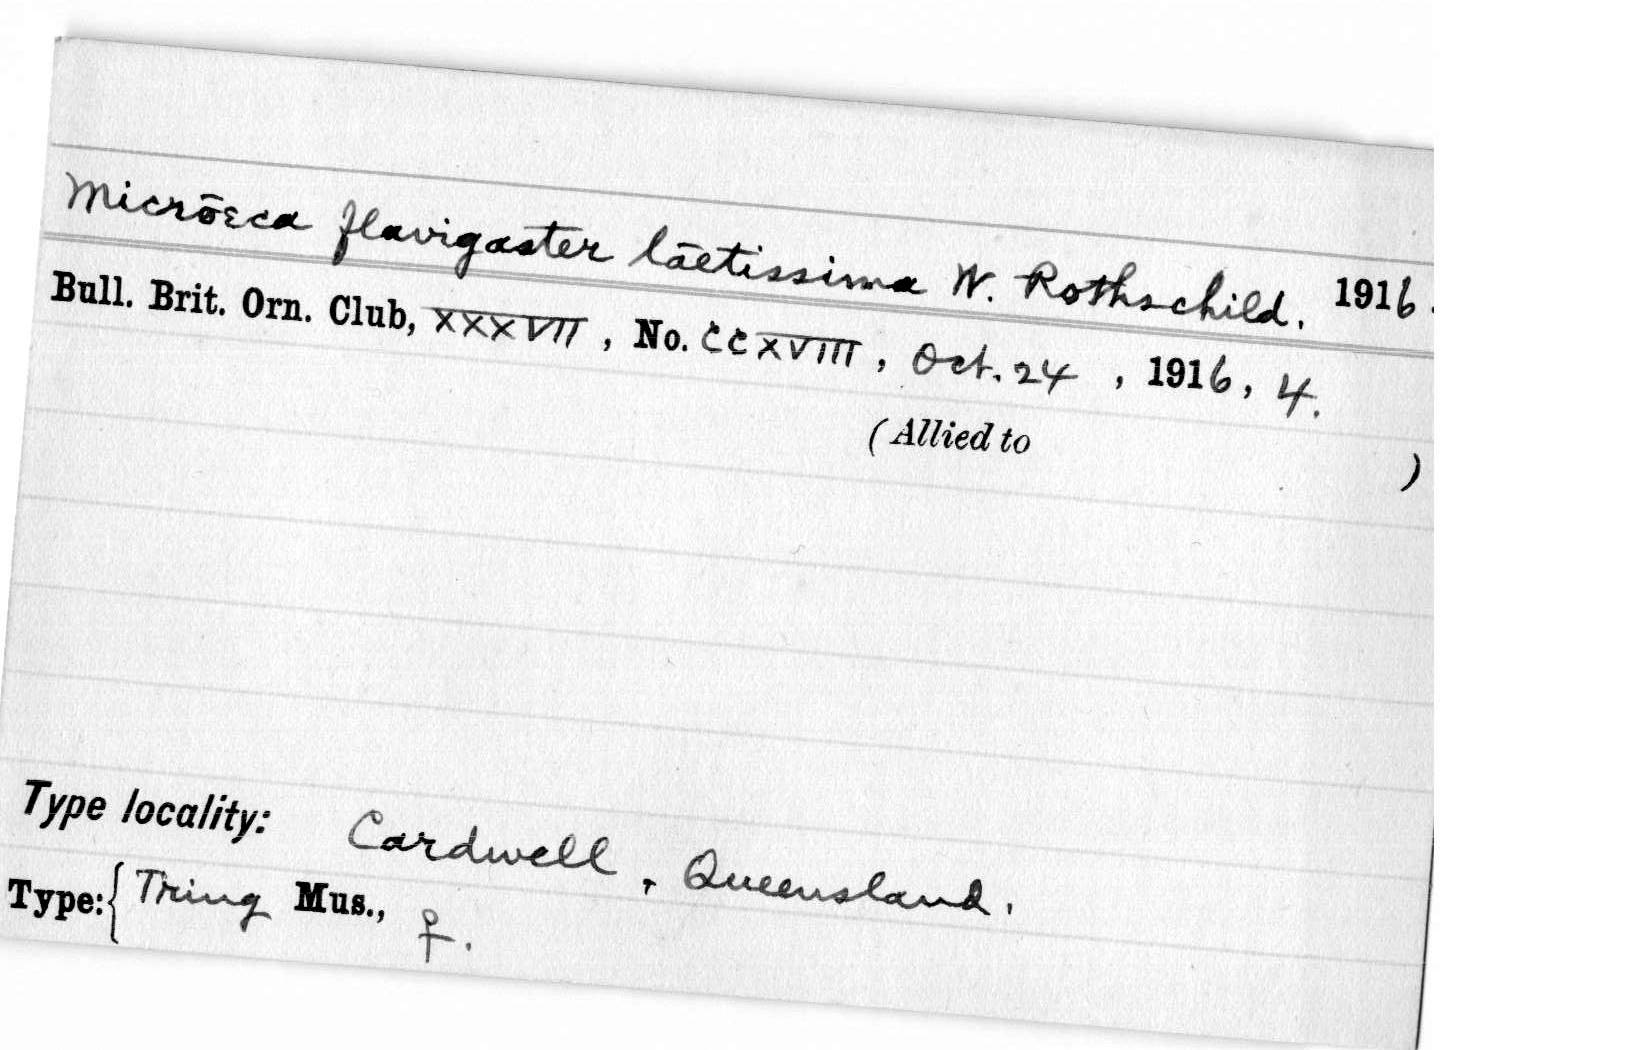 Micrōeca flavigaster lāetissima W. Rothschild. 1916.
Bull. Brit. Orn. Club, XXXVII, No. CCXVIII, Oct. 24, 1916, 4.
(Allied to )
Type locality: Cardwell, Queensland.
Type: { Tring Mus., ♀.